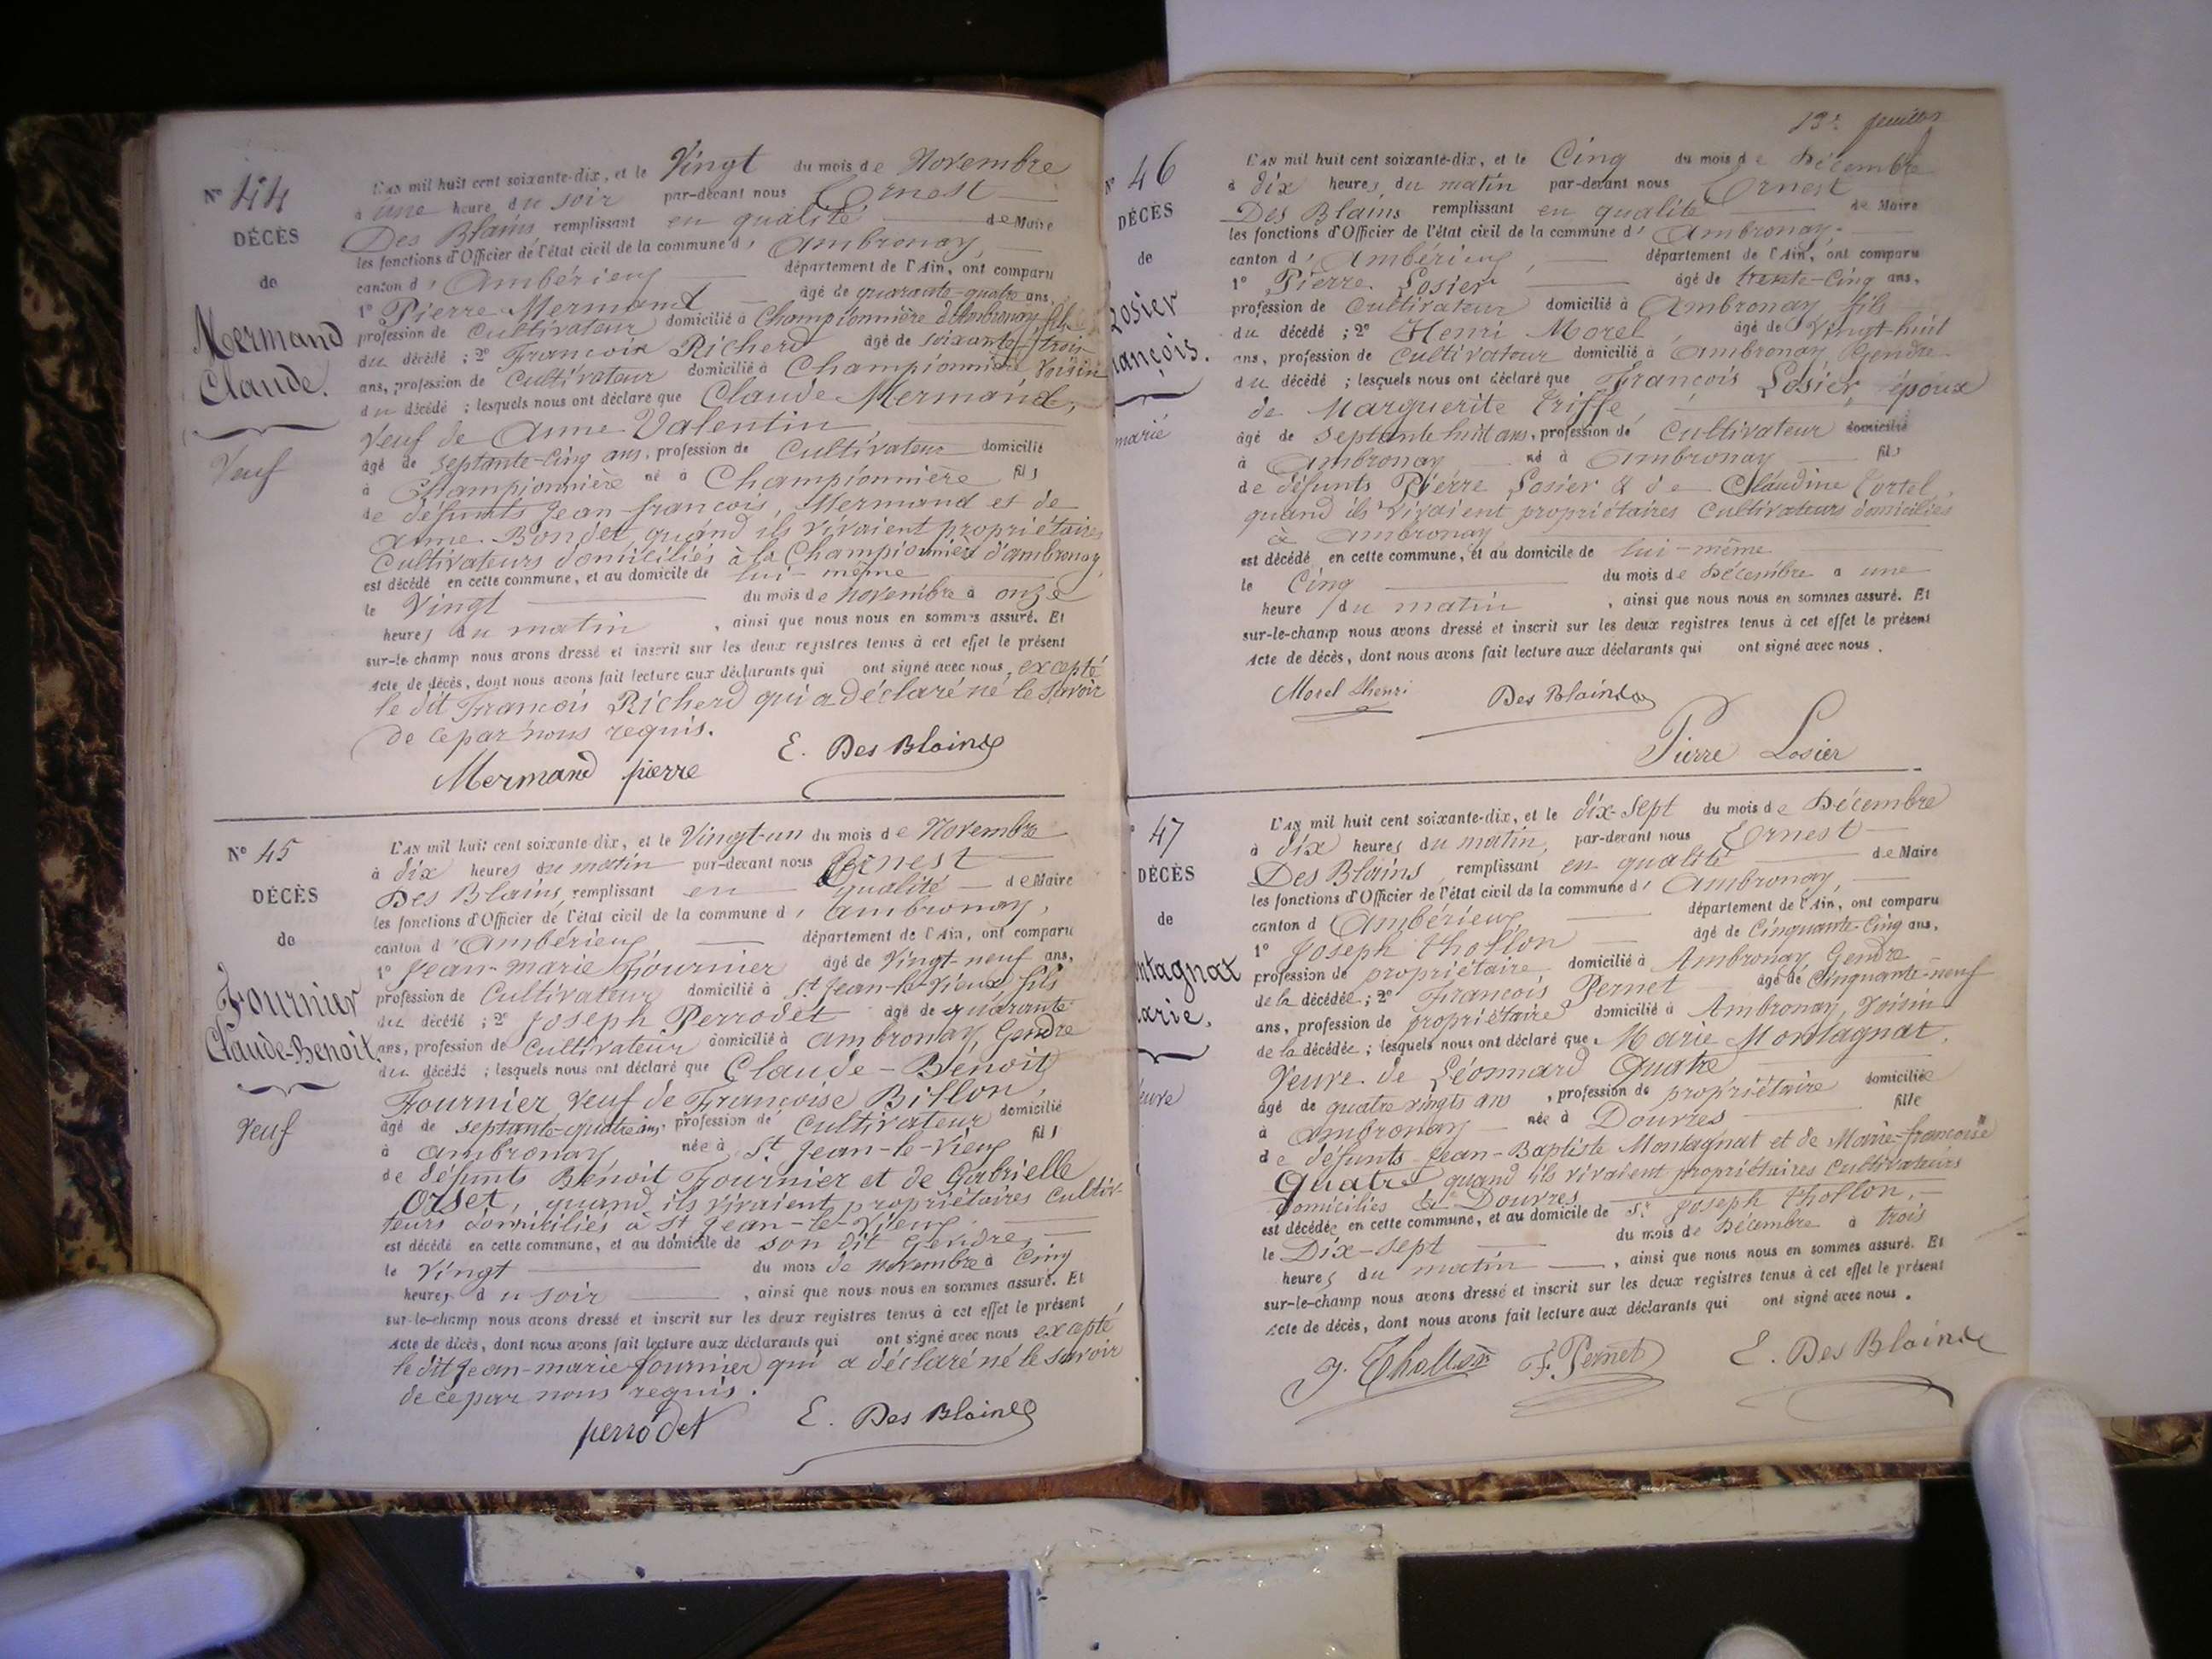 N° 44
DÉCÈS
de
Mermand
Claude.
Veuf
L'AN mil huit cent soixante-dix, et le Vingt du mois de Novembre
à une heure du soir par-devant nous Ernest
Des Blains remplissant en qualité de Maire
les fonctions d'Officier de l'état civil de la commune d' Ambronay,
canton d' Ambérieux département de l'Ain, ont comparu
1° Pierre Mermand âgé de quarante-quatre ans,
profession de Cultivateur domicilié à Championnière d'Ambronay fils
du décédé ; 2° François Richerd âgé de soixante-trois
ans, profession de Cultivateur domicilié à Championnière Voisin
du décédé ; lesquels nous ont déclaré que Claude Mermand,
Veuf de Anne Valentin,
âgé de septante-cinq ans, profession de Cultivateur domicilié
à Championnière né à Championnière fils
de défunts Jean-françois, Mermand et de
anne Bondet, quand ils vivaient propriétaires
Cultivateurs domiciliés à la Championnière d'ambronay,
est décédé en cette commune, et au domicile de lui-même
le Vingt du mois de novembre à onze
heures du matin, ainsi que nous nous en sommes assuré. Et
sur-le-champ nous avons dressé et inscrit sur les deux registres tenus à cet effet le présent
Acte de décès, dont nous avons fait lecture aux déclarants qui ont signé avec nous, excepté
le dit François Richerd qui a déclaré né le savoir
de ce par nous requis.
Mermand pierre E. Des Blains
N° 45
DÉCÈS
de
Fournier
Claude-Benoit.
Veuf
L'AN mil huit cent soixante-dix, et le Vingt-un du mois de Novembre
à dix heures du matin par-devant nous Ernest
Des Blains, remplissant en qualité de Maire
les fonctions d'Officier de l'état civil de la commune d' Ambronay,
canton d' Ambérieux département de l'Ain, ont comparu
1° Jean-marie Fournier âgé de Vingt-neuf ans,
profession de Cultivateur domicilié à St Jean-le-Vieux fils
du décédé ; 2° Joseph Perrodet âgé de quarante
ans, profession de Cultivateur domicilié à ambronay, Gendre
du décédé ; lesquels nous ont déclaré que Claude-Benoit
Fournier, veuf de Françoise Billon,
âgé de septante-quatre ans, profession de Cultivateur domicilié
à ambronay née à St Jean-le-Vieux fils
de défunts Benoit Fournier et de Gabrielle
Orset, quand ils vivaient propriétaires Cultiv-
teurs domiciliés à St Jean-le-Vieux
est décédé en cette commune, et au domicile de son dit Gendre,
le Vingt du mois de novembre à Cinq
heures du soir, ainsi que nous nous en sommes assuré. Et
sur-le-champ nous avons dressé et inscrit sur les deux registres tenus à cet effet le présent
Acte de décès, dont nous avons fait lecture aux déclarants qui ont signé avec nous excepté
le dit Jean-marie fournier qui a déclaré né le savoir
de ce par nous requis.
perrodet E. Des Blains
13e feuillet
N° 46
DÉCÈS
de
Losier
rançois.
marié
L'AN mil huit cent soixante-dix, et le Cinq du mois de Décembre
à dix heures du matin par-devant nous Ernest
Des Blains remplissant en qualité de Maire
les fonctions d'Officier de l'état civil de la commune d' Ambronay.
canton d' Ambérieux, département de l'Ain, ont comparu
1° Pierre Losier âgé de trente-cinq ans,
profession de Cultivateur domicilié à Ambronay fils
du décédé ; 2° Henri Morel, âgé de Vingt-huit
ans, profession de Cultivateur domicilié à Ambronay Gendre
du décédé ; lesquels nous ont déclaré que François Losier, époux
de Marguerite Triffe,
âgé de septante huit ans, profession de Cultivateur domicilié
à Ambronay né à Ambronay fils
de défunts Pierre Losier & de Claudine Tortel,
quand ils vivaient propriétaires Cultivateurs domiciliés
à Ambronay
est décédé en cette commune, et au domicile de lui-même
le Cinq du mois de Décembre a une
heure du matin, ainsi que nous nous en sommes assuré. Et
sur-le-champ nous avons dressé et inscrit sur les deux registres tenus à cet effet le présent
Acte de décès, dont nous avons fait lecture aux déclarants qui ont signé avec nous.
Morel henri Des Blains
Pierre Losier
47
DÉCÈS
de
ntagnat
arie.
euve
L'AN mil huit cent soixante-dix, et le dix-sept du mois de Décembre
à dix heures du matin, par-devant nous Ernest
Des Blains, remplissant en qualité de Maire
les fonctions d'Officier de l'état civil de la commune d' Ambronay,
canton d' Ambérieux, département de l'Ain, ont comparu
1° Joseph Thollon âgé de Cinquante-Cinq ans,
profession de propriétaire domicilié à Ambronay, Gendre
de la décédée ; 2° François Pernet âgé de Cinquante-neuf
ans, profession de propriétaire domicilié à Ambronay, Voisin
de la décédée ; lesquels nous ont déclaré que Marie Montagnat,
Veuve de Léonnard Quatre
âgé de quatre vingts ans, profession de propriétaire domiciliée
à Ambronay née à Douvres fille
de défunts Jean-Baptiste Montagnat et de Marie-françoise
Quatre quand ils vivaient propriétaires cultivateurs
domiciliés à Douvres
est décédée en cette commune, et au domicile de Sr Joseph Thollon,
le Dix-sept du mois de Décembre à trois
heures du matin, ainsi que nous nous en sommes assuré. Et
sur-le-champ nous avons dressé et inscrit sur les deux registres tenus à cet effet le présent
Acte de décès, dont nous avons fait lecture aux déclarants qui ont signé avec nous.
J. Thollon F. Pernet E. Des Blains